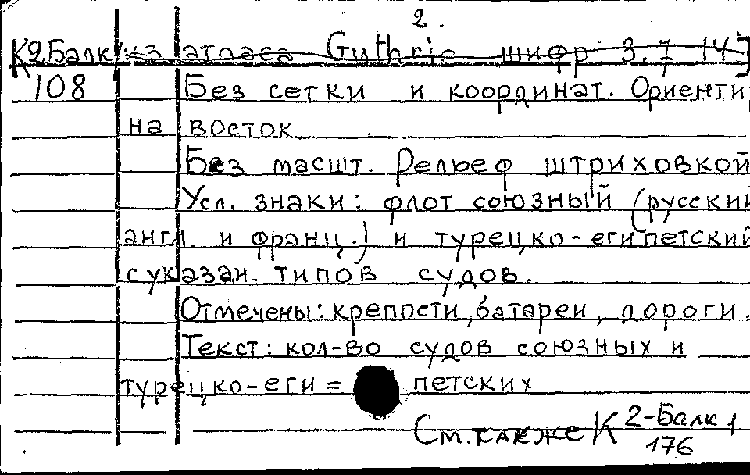 2.
К2Балк из атласа Guthrie шифр 3.7.14]
108 Без сетки и координат. Ориенти
на восток
Без масшт. Рельеф штриховкой
Усл. знаки: флот союзный (русский
англ. и франц.) и турецко-египетский
с указан. типов судов.
Отмечены: крепости, батареи, дороги.
Текст: кол-во судов союзных и
турецко-еги= петских
См. также К 2-Балк 1
176